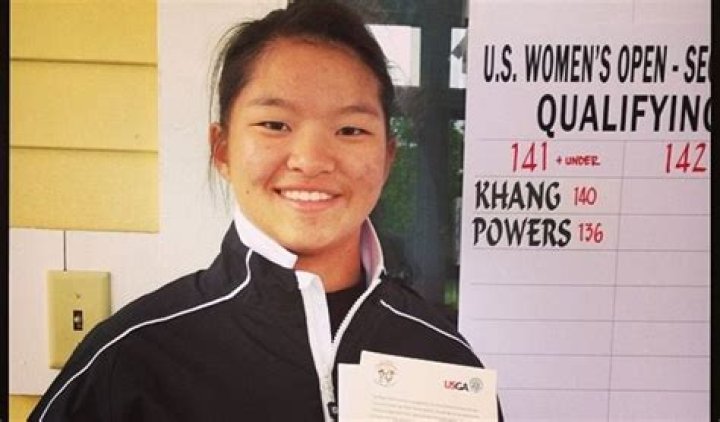 U.S. WOMEN'S OPEN - SE
QUALIFYING
141 + UNDER 142
KHANG 140
POWERS 136
USGA